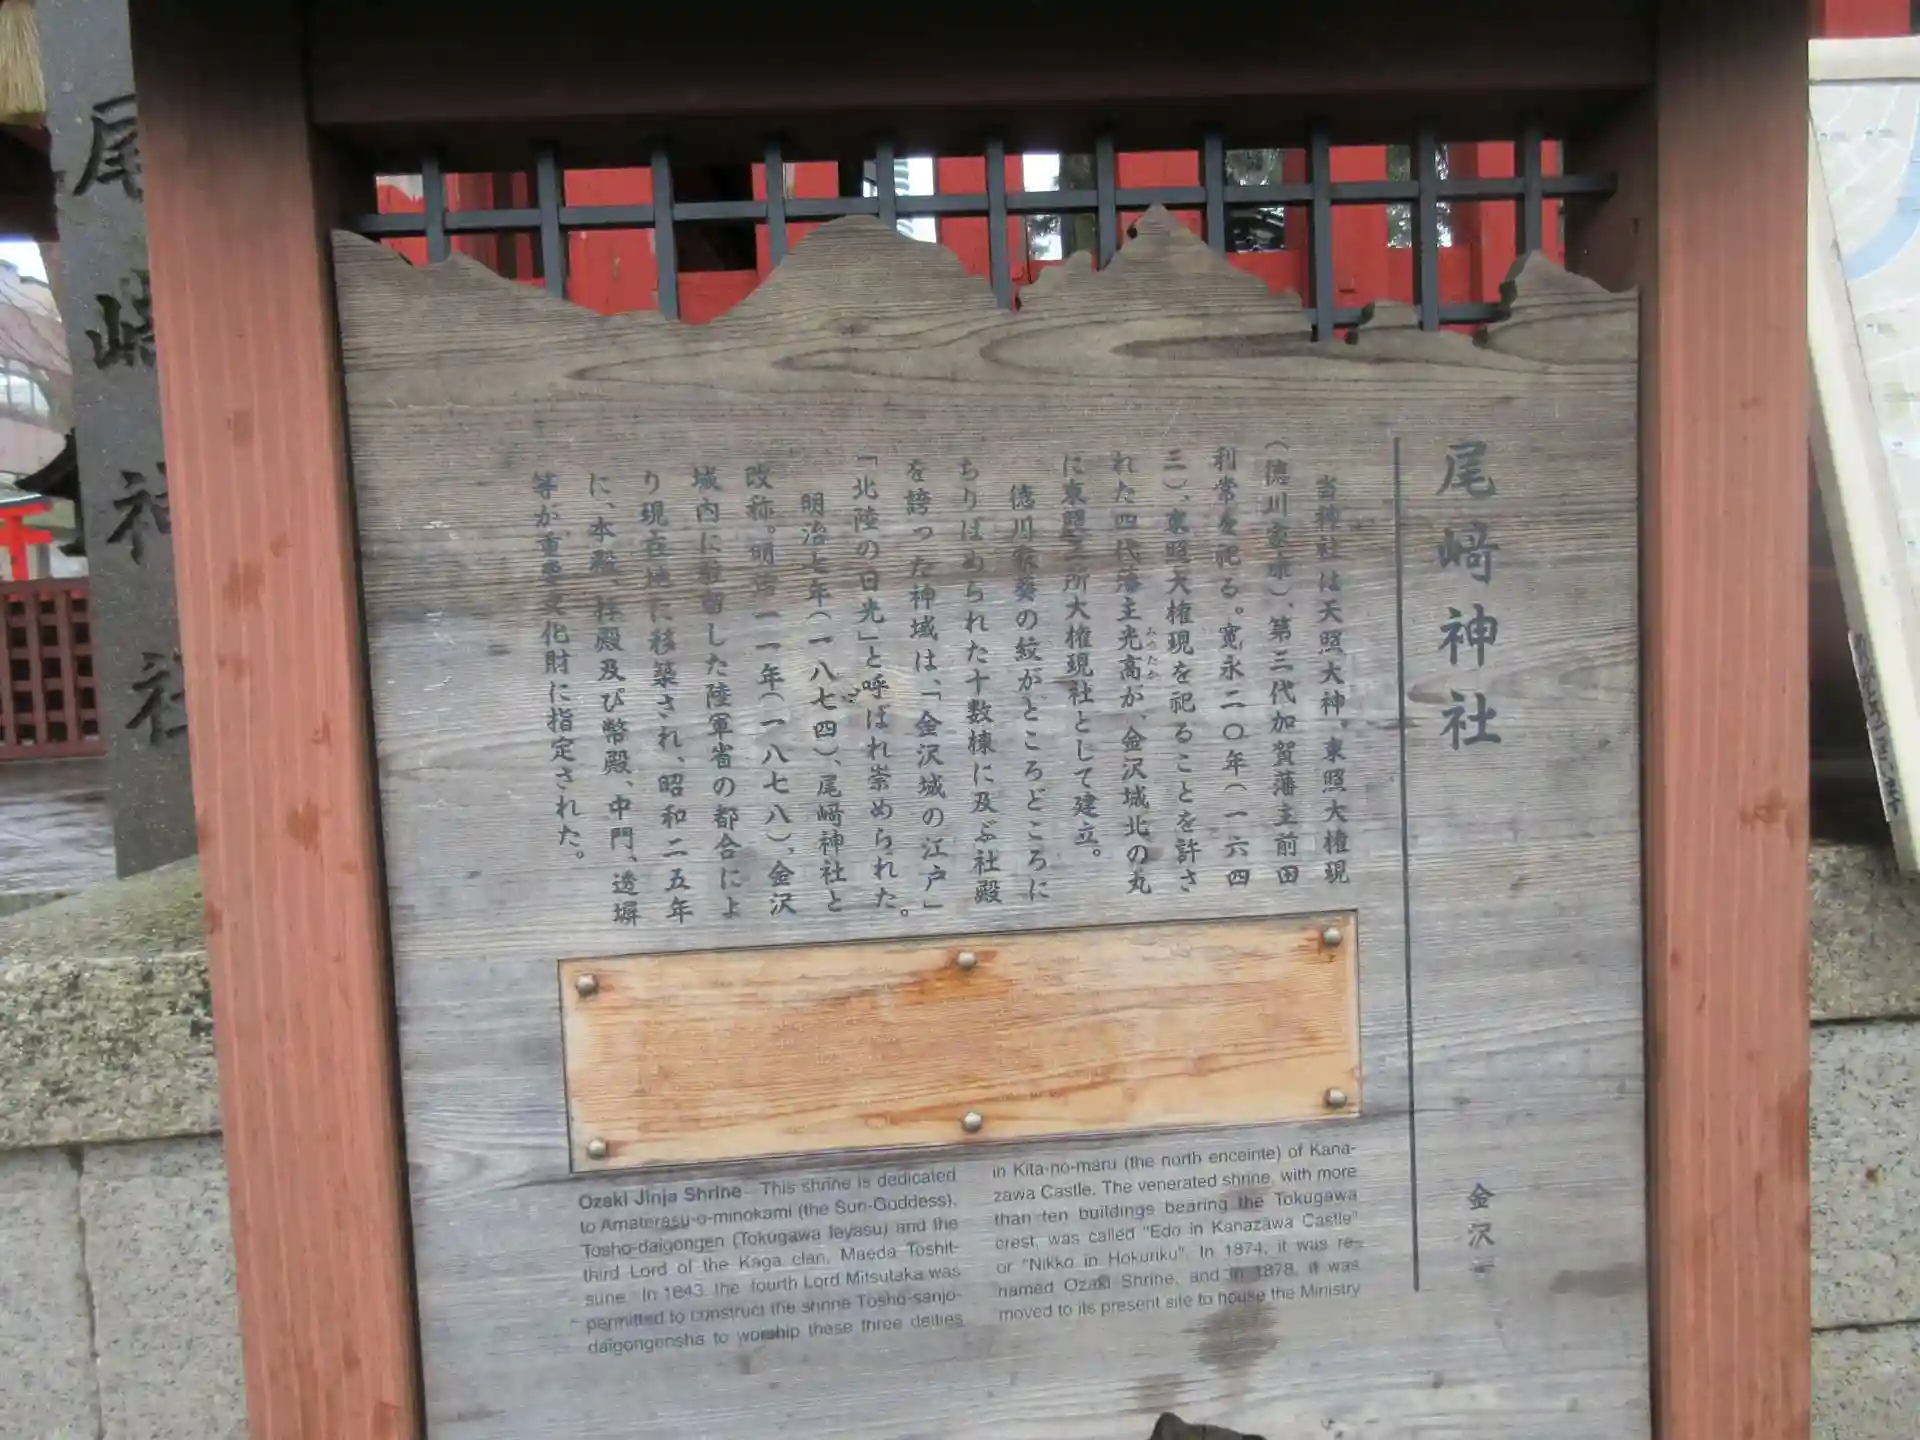 尾﨑神社
当神社は天照大神、東照大権現
（徳川家康）、第三代加賀藩主前田
利常を祀る。寛永二〇年（一六四
三）、東照大権現を祀ることを許さ
れた四代藩主光高が、金沢城北の丸
みつたか
に東照三所大権現社として建立。
徳川家葵の紋がところどころに
ちりばめられた十数棟に及ぶ社殿
を誇った神域は、「金沢城の江戸」
「北陸の日光」と呼ばれ崇められた。
明治七年（一八七四）、尾﨑神社と
改称。明治一一年（一八七八）、金沢
城内に駐留した陸軍省の都合によ
り現在地に移築され、昭和二五年
に、本殿、拝殿及び幣殿、中門、透塀
等が重要文化財に指定された。
金沢
Ozaki Jinja Shrine This shrine is dedicated
to Amaterasu-o-minokami (the Sun-Goddess),
Tosho-daigongen (Tokugawa Ieyasu) and the
third Lord of the Kaga clan, Maeda Toshit-
sune. In 1643, the fourth Lord Mitsutaka was
permitted to construct the shrine Tosho-sanjo-
daigongensha to worship these three deities
in Kita-no-maru (the north enceinte) of Kana-
zawa Castle. The venerated shrine, with more
than ten buildings bearing the Tokugawa
crest, was called "Edo in Kanazawa Castle"
or "Nikko in Hokuriku". In 1874, it was re-
named Ozaki Shrine, and in 1878, it was
moved to its present site to house the Ministry
尾﨑神社